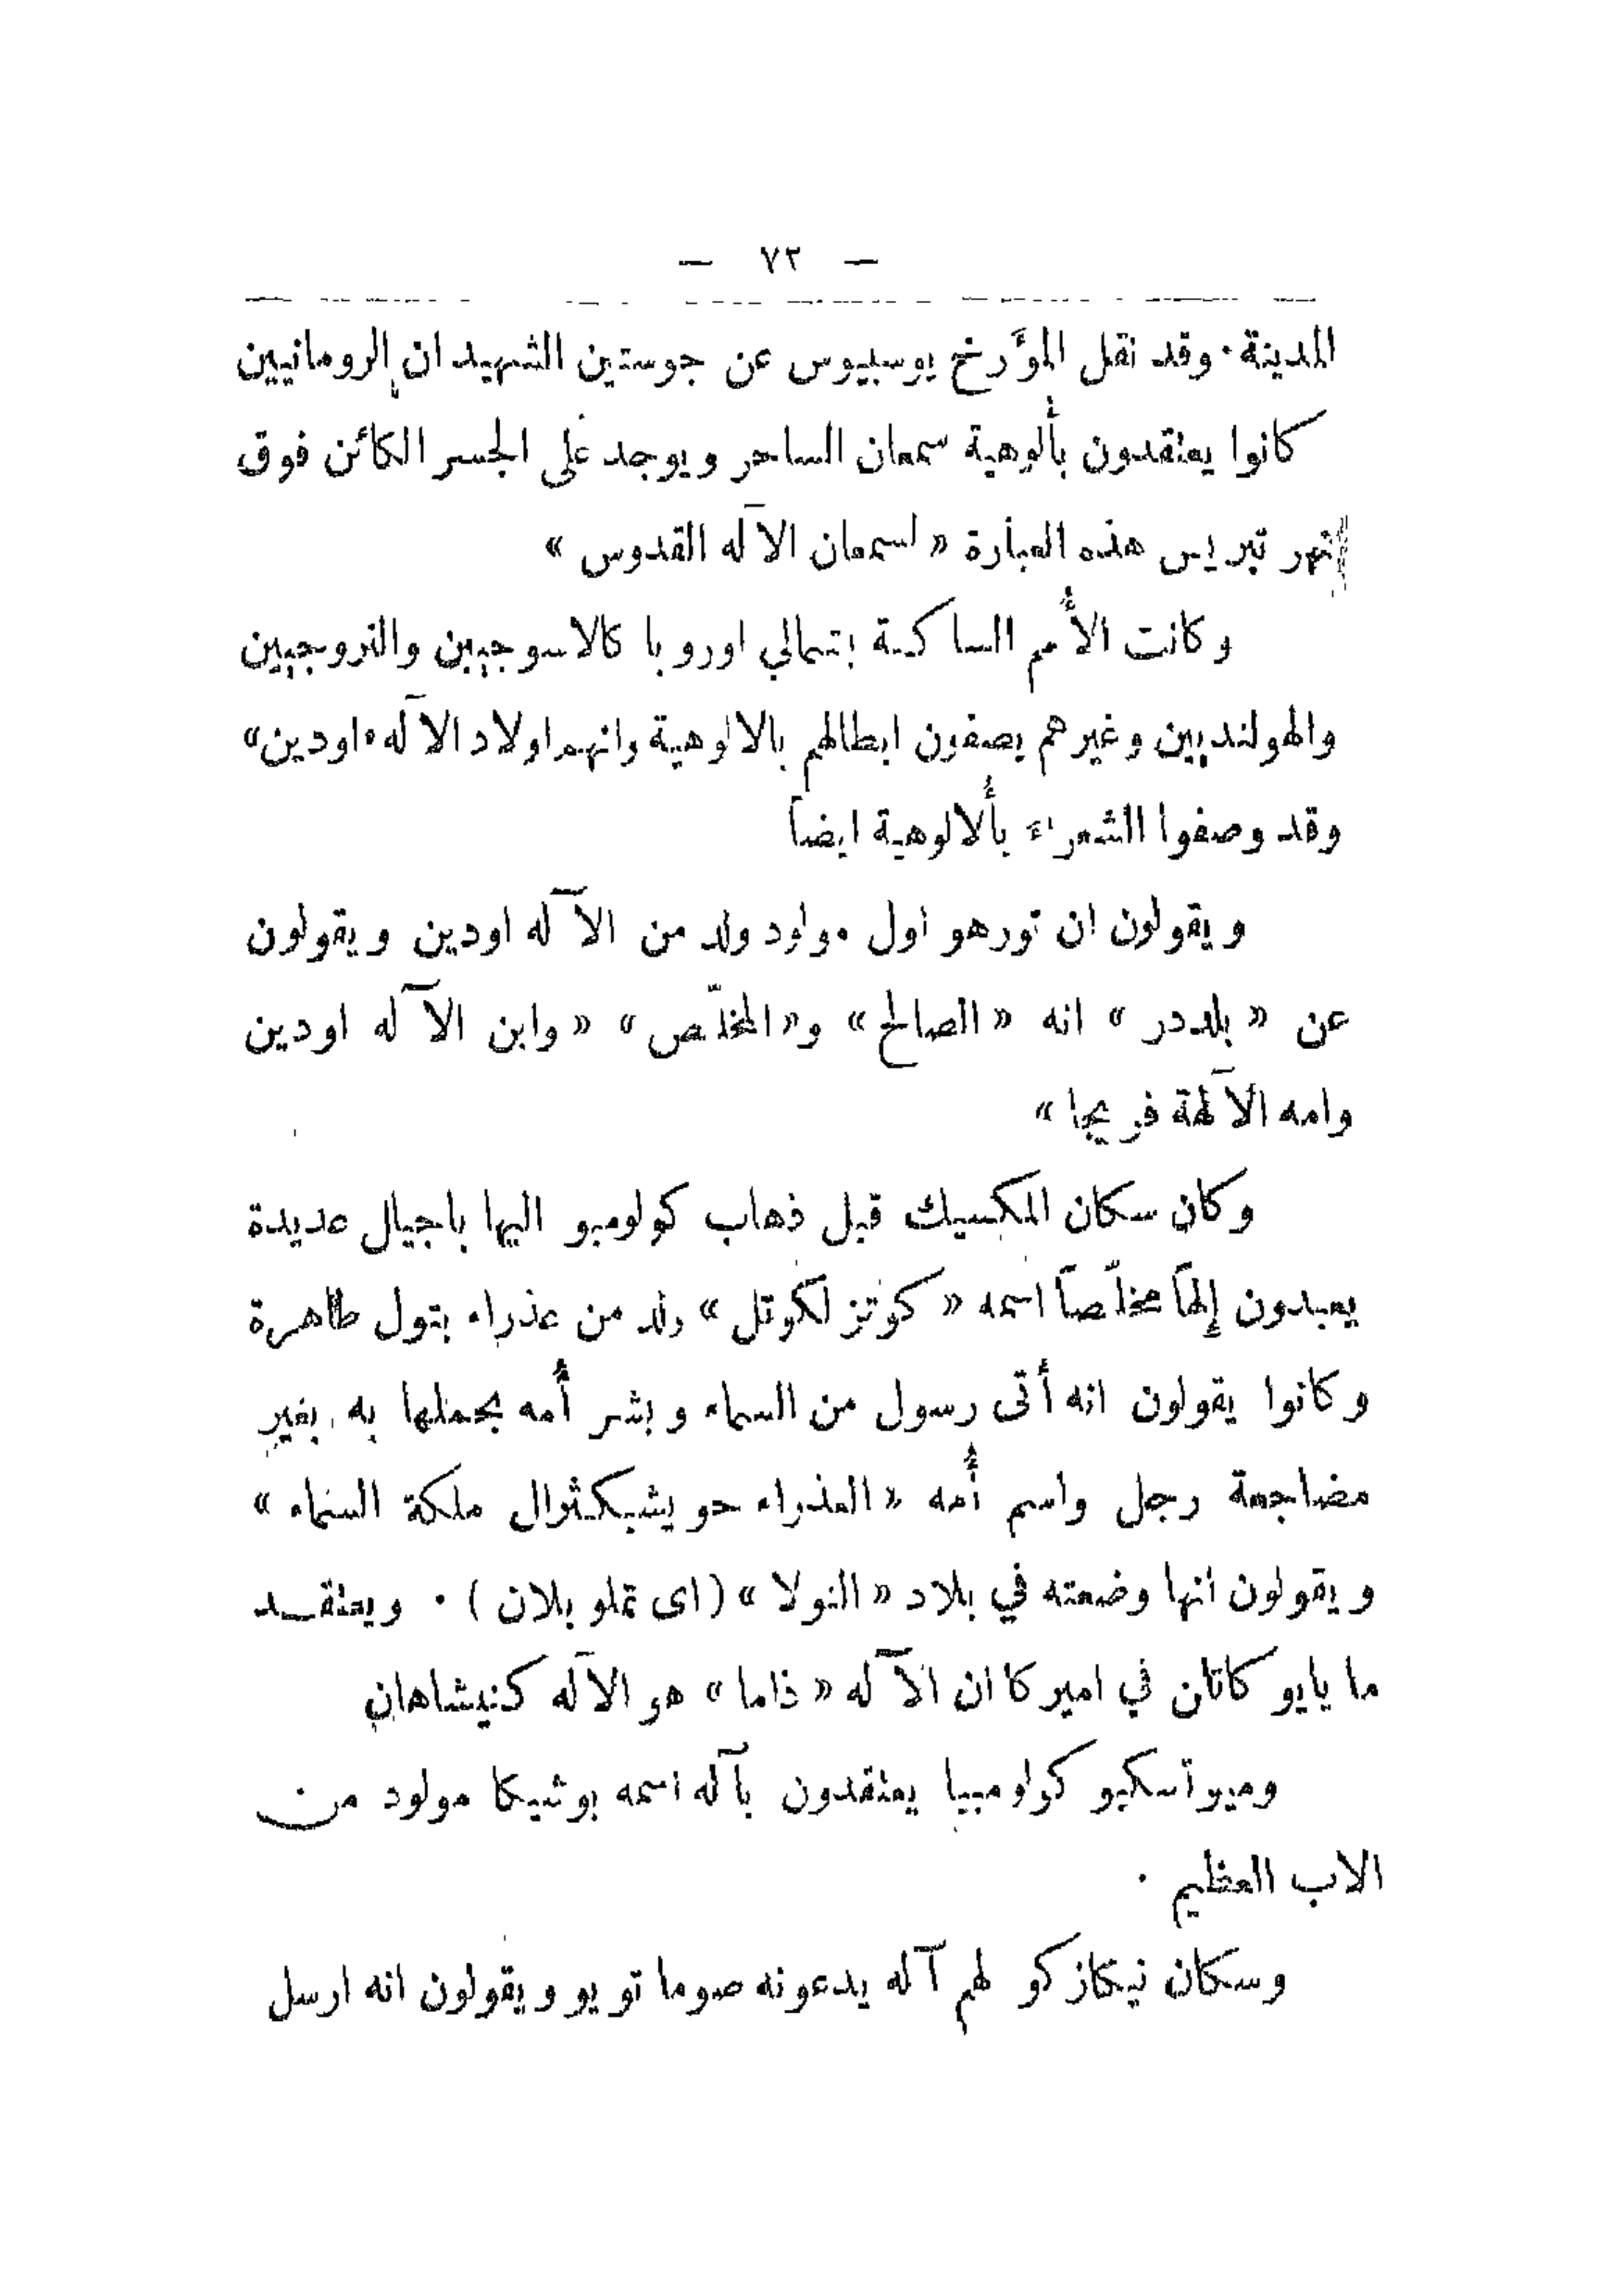 — ٧٢ —
المدينة · وقد نقل المؤرخ يوسبيوس عن جوستين الشهيد ان الرومانيين
كانوا يعتقدون بألوهية سمعان الساحر ويوجد على الجسر الكائن فوق
نهر تبريس هذه العبارة « لسمعان الاآله القدوس »
وكانت الأُمم الساكنة بشمالي اوروبا كالاسوجيين والنروجيين
والهولنديين وغيرهم يصفون ابطالهم بالالوهية وانهم اولاد الاآله «اودين»
وقد وصفوا الشعراء بألالوهية ايضاً
ويقولون ان تورهو اول مولود ولد من الاآله اودين ويقولون
عن « بلددر » انه « الصالح » و« المخلّص » « وابن الاآله اودين
وامه الاآلهة فريجا »
وكان سكان المكسيك قبل ذهاب كولومبو اليها باجيال عديدة
يعبدون إلهاً مخلّصاً اسمه « كوتزلكوتل » ولد من عذراء بتول طاهرة
وكانوا يقولون انه أتى رسول من السماء وبشر أُمه بحملها به بغير
مضاجعة رجل واسم أُمه « العذراء حويشبكثرال ملكة السماء »
ويقولون انها وضعته في بلاد « النولا » (اى تملوبلان) · ويعتقد
مايا يوكاتان في اميركا ان الاآله « ذاما » هو الاآله كنيشاهان
وميوآسكيو كولومبيا يعتقدون بآله اسمه بوشيكا مولود من
الاب العظيم ·
وسكان نيكازكو لهم آله يدعونه صوما تويو ويقولون انه ارسل